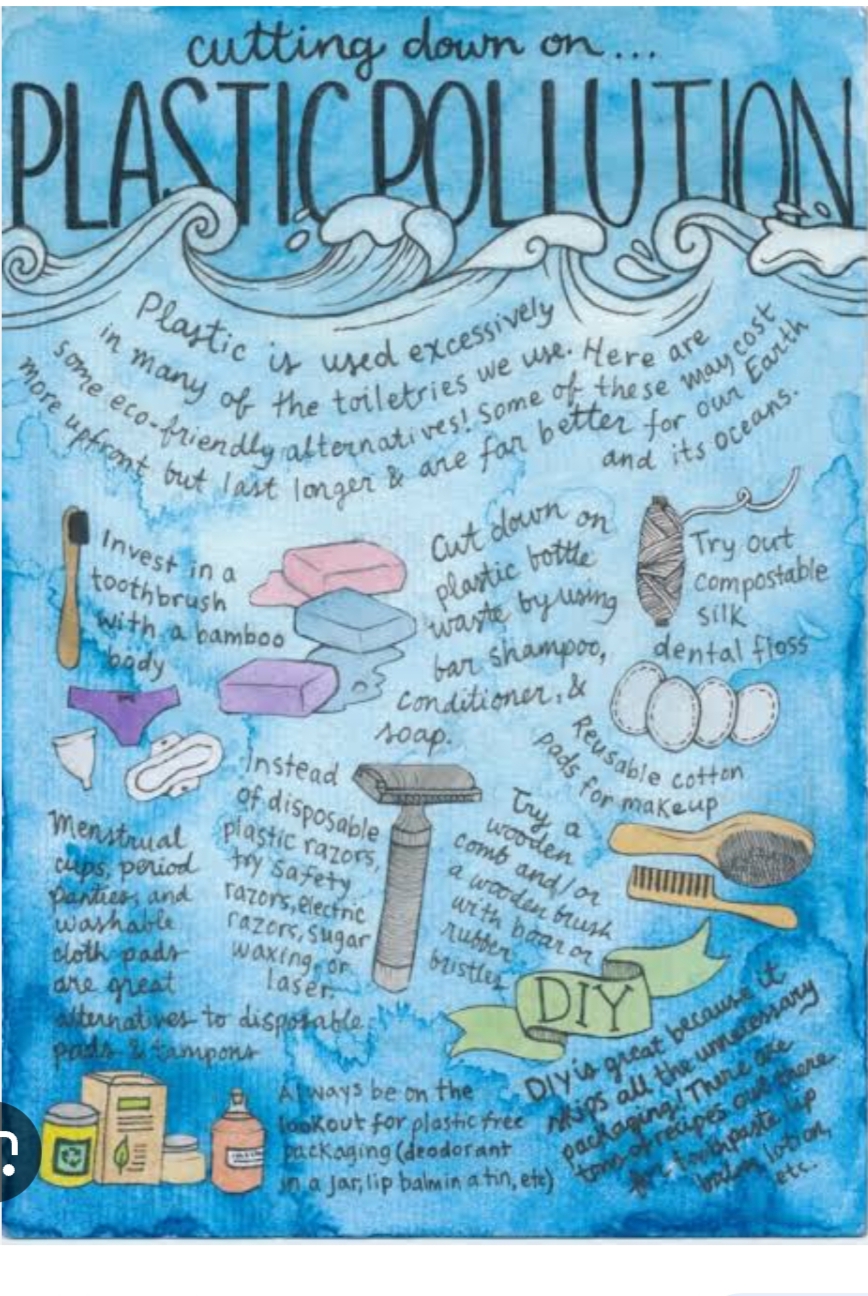 cutting down on...
PLASTIC POLLUTION
Plastic is used excessively
in many of the toiletries we use. Here are
some eco-friendly alternatives! Some of these may cost
more upfront but last longer & are far better for our Earth
and its oceans.
Invest in a
toothbrush
with a bamboo
body
Cut down on
plastic bottle
waste by using
bar shampoo,
conditioner, &
soap.
Try out
compostable
silk
dental floss
Reusable cotton
pads for makeup
Menstrual
cups, period
panties, and
washable
cloth pads
are great
alternatives to disposable
pads & tampons
Instead
of disposable
plastic razors,
try safety
razors, electric
razors, sugar
waxing, or
laser.
Try a
wooden
comb and/or
a wooden brush
with boar or
rubber
bristles
DIY
DIY is great because it
skips all the unnecessary
packaging! There are
tons of recipes out there
for toothpaste, lip
balm, lotion,
etc.
Always be on the
lookout for plastic free
packaging (deodorant
in a jar, lip balm in a tin, etc)